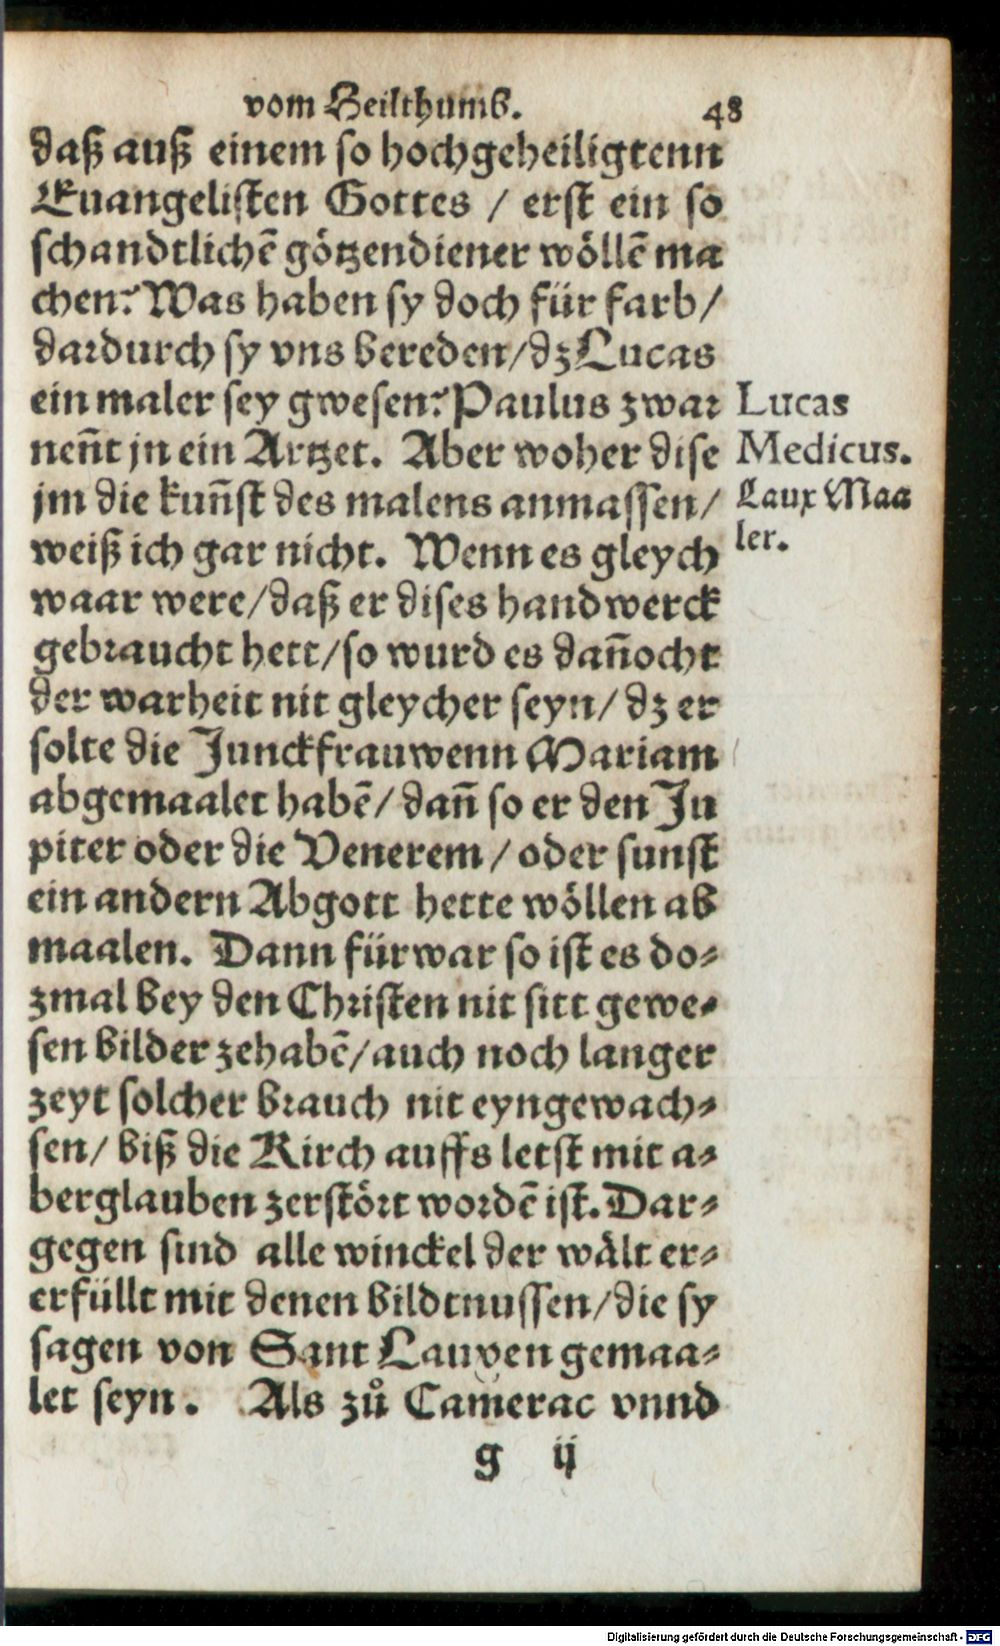 vom Heilthumb. 48
daß auß einem so hochgeheiligtenn
Euangelisten Gottes / erst ein so
schandtlichē götzendiener wöllē ma
chen? Was haben sy doch für farb /
dardurch sy vns bereden / dz Lucas
ein maler sey gwesen? Paulus zwar
neñt jn ein Artzet. Aber woher dise
jm die kuñst des malens anmassen /
weiß ich gar nicht. Wenn es gleych
waar were / daß er dises handwerck
gebraucht hett / so wurd es dañocht
der warheit nit gleycher seyn / dz er
solte die Junckfrauwenn Mariam
abgemaalet habē / dañ so er den Ju
piter oder die Venerem / oder sunst
ein andern Abgott hette wöllen ab
maalen. Dann fürwar so ist es do-
zmal bey den Christen nit sitt gewe-
sen bilder zehabē / auch noch langer
zeyt solcher brauch nit eyngewach-
sen / biß die Kirch auffs letst mit a-
berglauben zerstört wordē ist. Dar-
gegen sind alle winckel der wält er-
erfüllt mit denen bildtnussen / die sy
sagen von Sant Lauxen gemaa-
let seyn. Als zů Camerac vnnd
g ij
Lucas
Medicus.
Laux Maa
ler.
Digitalisierung gefördert durch die Deutsche Forschungsgemeinschaft - DFG